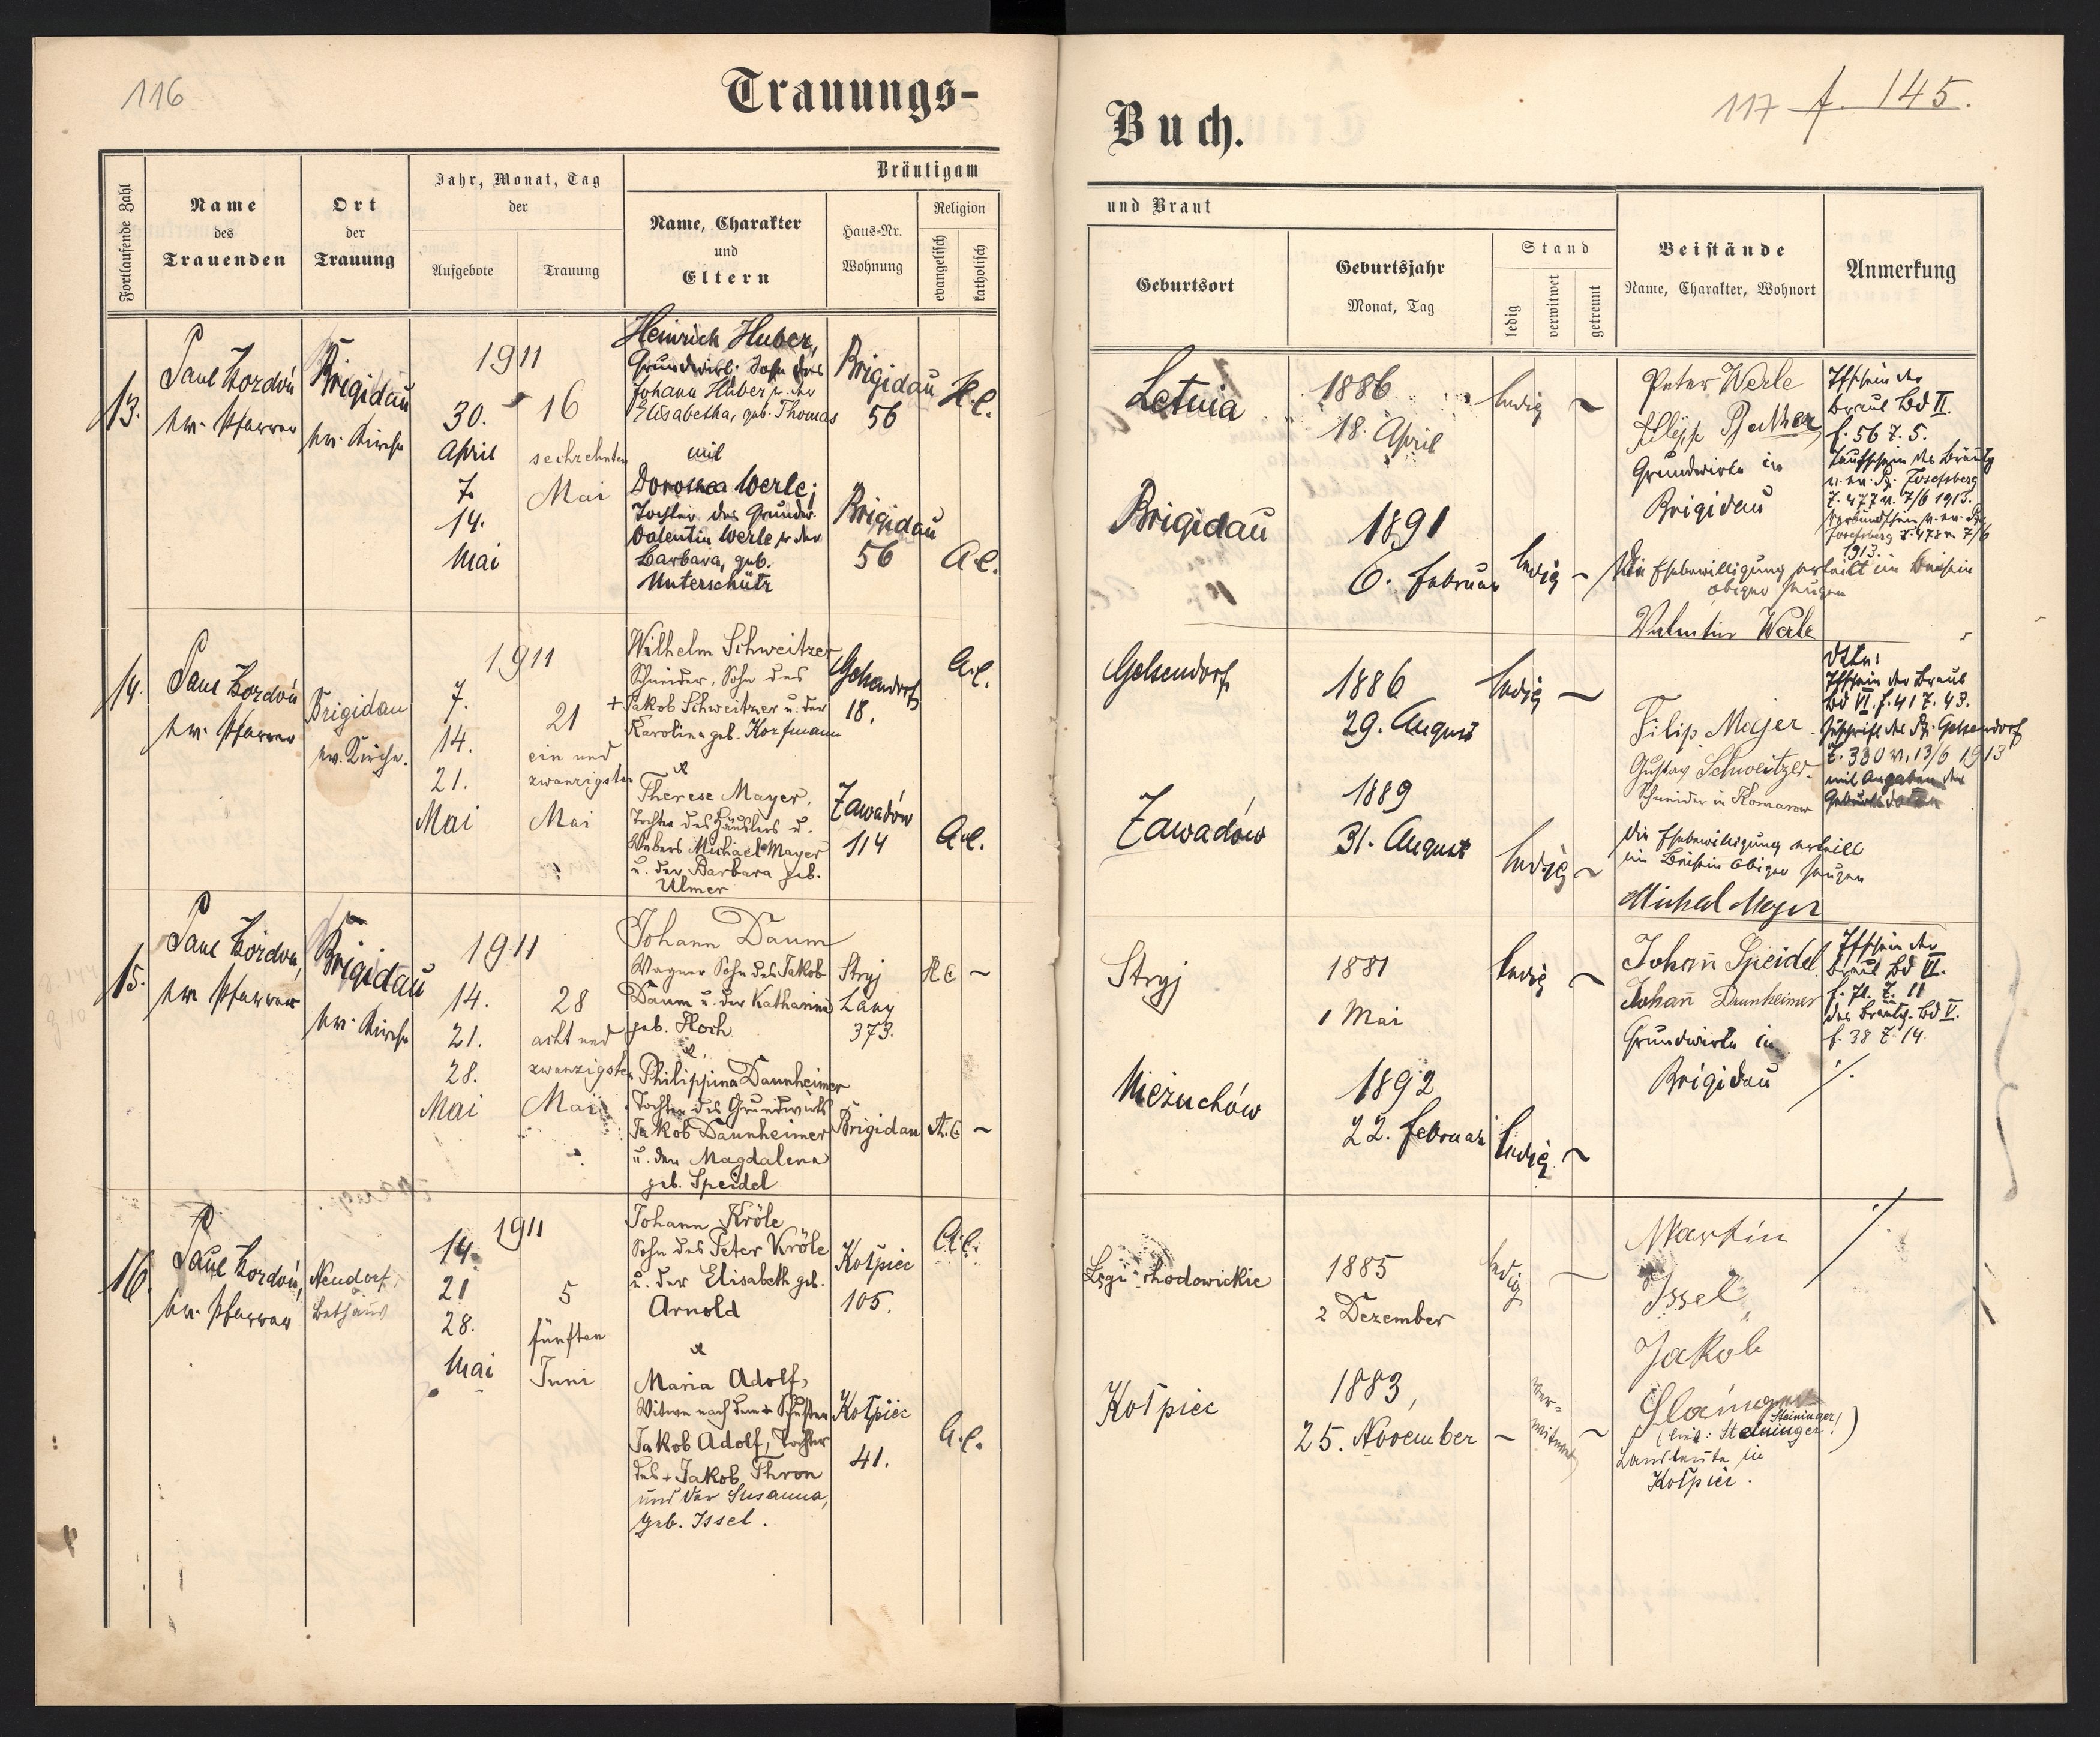 116
Trauungs-
Fortlaufende Zahl
Name
des
Trauenden
Ort
der
Trauung
Jahr, Monat, Tag
der
Aufgebote
Trauung
Bräutigam
Name, Charakter
und
Eltern
Haus-Nr.
Wohnung
Religion
evangelisch
katholisch
13.
Paul Kordón
ev. Pfarrer
Brigidau
ev. Kirche
1911
30.
April
7.
14.
Mai
16
sechzehnten
Mai
Heinrich Huber,
Grundwirt, Sohn des
Johann Huber u. der
Elisabetha, geb. Thomas
mit
Dorothea Werle;
Tochter des Grundw.
Valentin Werle u. der
Barbara, geb.
Unterschütz
Brigidau
56
Brigidau
56
H.C.
A.C.
14.
Paul Kordón
ev. Pfarrer
Brigidau
ev. Kirche.
1911
7.
14.
21.
Mai
21
ein und
zwanzigsten
Mai
Wilhelm Schweitzer
Schneider, Sohn des
+ Jakob Schweitzer u. der
Karolina geb. Korfmann
&
Therese Mayer,
Tochter des Häuslers u.
Webers Michael Mayer
u. der Barbara geb.
Ulmer
Gelsendorf
18.
Zawadów
114
A.C.
A.C.
15.
Paul Kordón,
ev. Pfarrer
Brigidau
ev. Kirche
1911
14.
21.
28.
Mai
28
acht und
zwanzigsten
Mai
Johann Daum
Wagner Sohn des Jakob
Daum u. der Katharina
geb. Hoch
&
Philippina Daunheimer
Tochter des Grundwirts
Jakob Daunheimer
u. der Magdalena
geb. Speidel
Stryj
Lany
373.
Brigidau
H C ~
A.C ~
16.
Paul Kordón,
ev. Pfarrer
Neudorf,
Bethaus
1911
14.
21
28.
Mai
5
fünften
Juni
Johann Kröle
Sohn des Peter Kröle
u. der Elisabeth geb.
Arnold
&
Maria Adolf,
Witwe nach dem + Schuster
Jakob Adolf, Tochter
des + Jakob Thron
und der Susanna,
geb. Issel.
Kołpiec
105.
Kołpiec
41.
A.C.
A.C.
Buch.
117 f. 145.
und Braut
Geburtsort
Geburtsjahr
Monat, Tag
Stand
ledig
verwitwet
getrennt
Beistände
Name, Charakter, Wohnort
Anmerkung
Letnia
1886
18. April
ledig ~
Brigidau
1891
6. Februar
ledig ~
Peter Werle
Grundwirte in
Brigidau
Die Ehebewilligung erteilt im Beisein
obiger Zeugen
Valentin Werle
Ifschein der
Braut Bd II.
f. 56 Z. 5.
Taufschein des Bräutg
v. ev. Pf. Josefsberg
Z. 477 v. 7/6 1913.
Josefsberg Z. 478 v. 7/6
1913.
Gelsendorf
1886
29. August
ledig ~
Zawadów
1889
31. August
ledig ~
Filip Majer
Gustav Schweitzer
Schneider in Komarow
Die Ehebewilligung erteilt
im Beisein obiger Zeugen
Michal Mejer
Ifschein der Braut
Bd VI. f. 41 Z. 43.
Zuschrift des Pf. Gelsendorf
Z. 330 v. 13/6 1913
mit Angaben der
Geburtsdaten
Stryj
1881
1 Mai
ledig ~
Nieżuchów
1892
22. Februar
ledig ~
Johann Speidel
Johann Daunheimer
Grundwirte in
Brigidau
Ifschein der
Braut Bd VI.
f. 71. Z. 11
des Bräutg. Bd V.
f. 38 Z. 14
1885
2 Dezember
ledig ~
Kołpiec
1883,
25. November
~ ver-
witwet ~
Martin
Issel,
Jakob
Steininger!
(lies: Steininger)
Landleute in
Kołpiec.